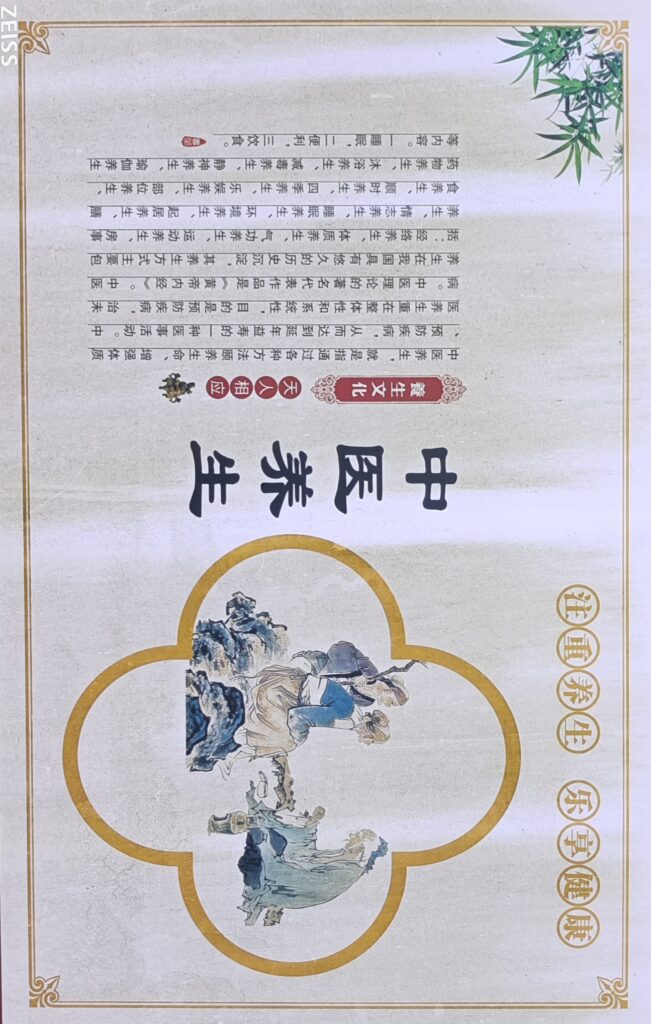 注重养生 乐享健康
中医养生
養生文化
天人相应
中医养生,就是指通过各种方法颐养生命、增强体质
、预防疾病,从而达到延年益寿的一种医事活动。中
医养生重在整体性和系统性,目的是预防疾病,治未
病。中医理论的著名代表作品是《黄帝内经》。中医
养生在我国具有悠久的历史沉淀,其养生方式主要包
括:经络养生、体质养生、气功养生、运动养生、房事
养生、情志养生、睡眠养生、环境养生、起居养生、膳
食养生、顺时养生、四季养生、乐娱养生、部位养生、
药物养生、沐浴养生、减毒养生、静神养生、瑜伽养生
等内容。一睡眠,二便利,三饮食
ZEISS